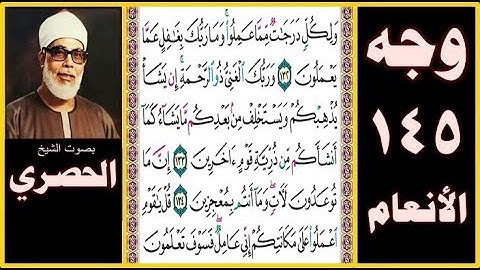 وَلِكُلٍّ دَرَجَٰتٌ مِّمَّا عَمِلُوا۟ ۚ وَمَا رَبُّكَ بِغَٰفِلٍ عَمَّا
يَعْمَلُونَ ١٣٢ وَرَبُّكَ ٱلْغَنِىُّ ذُو ٱلرَّحْمَةِ ۚ إِن يَشَأْ
يُذْهِبْكُمْ وَيَسْتَخْلِفْ مِنۢ بَعْدِكُم مَّا يَشَآءُ كَمَآ
أَنشَأَكُم مِّن ذُرِّيَّةِ قَوْمٍ ءَاخَرِينَ ١٣٣ إِنَّ مَا
تُوعَدُونَ لَءَاتٍ ۖ وَمَآ أَنتُم بِمُعْجِزِينَ ١٣٤ قُلْ يَٰقَوْمِ
ٱعْمَلُوا۟ عَلَىٰ مَكَانَتِكُمْ إِنِّى عَامِلٌ ۖ فَسَوْفَ تَعْلَمُونَ
وجه
١٤٥
الأنعام
بصوت الشيخ
الحصري